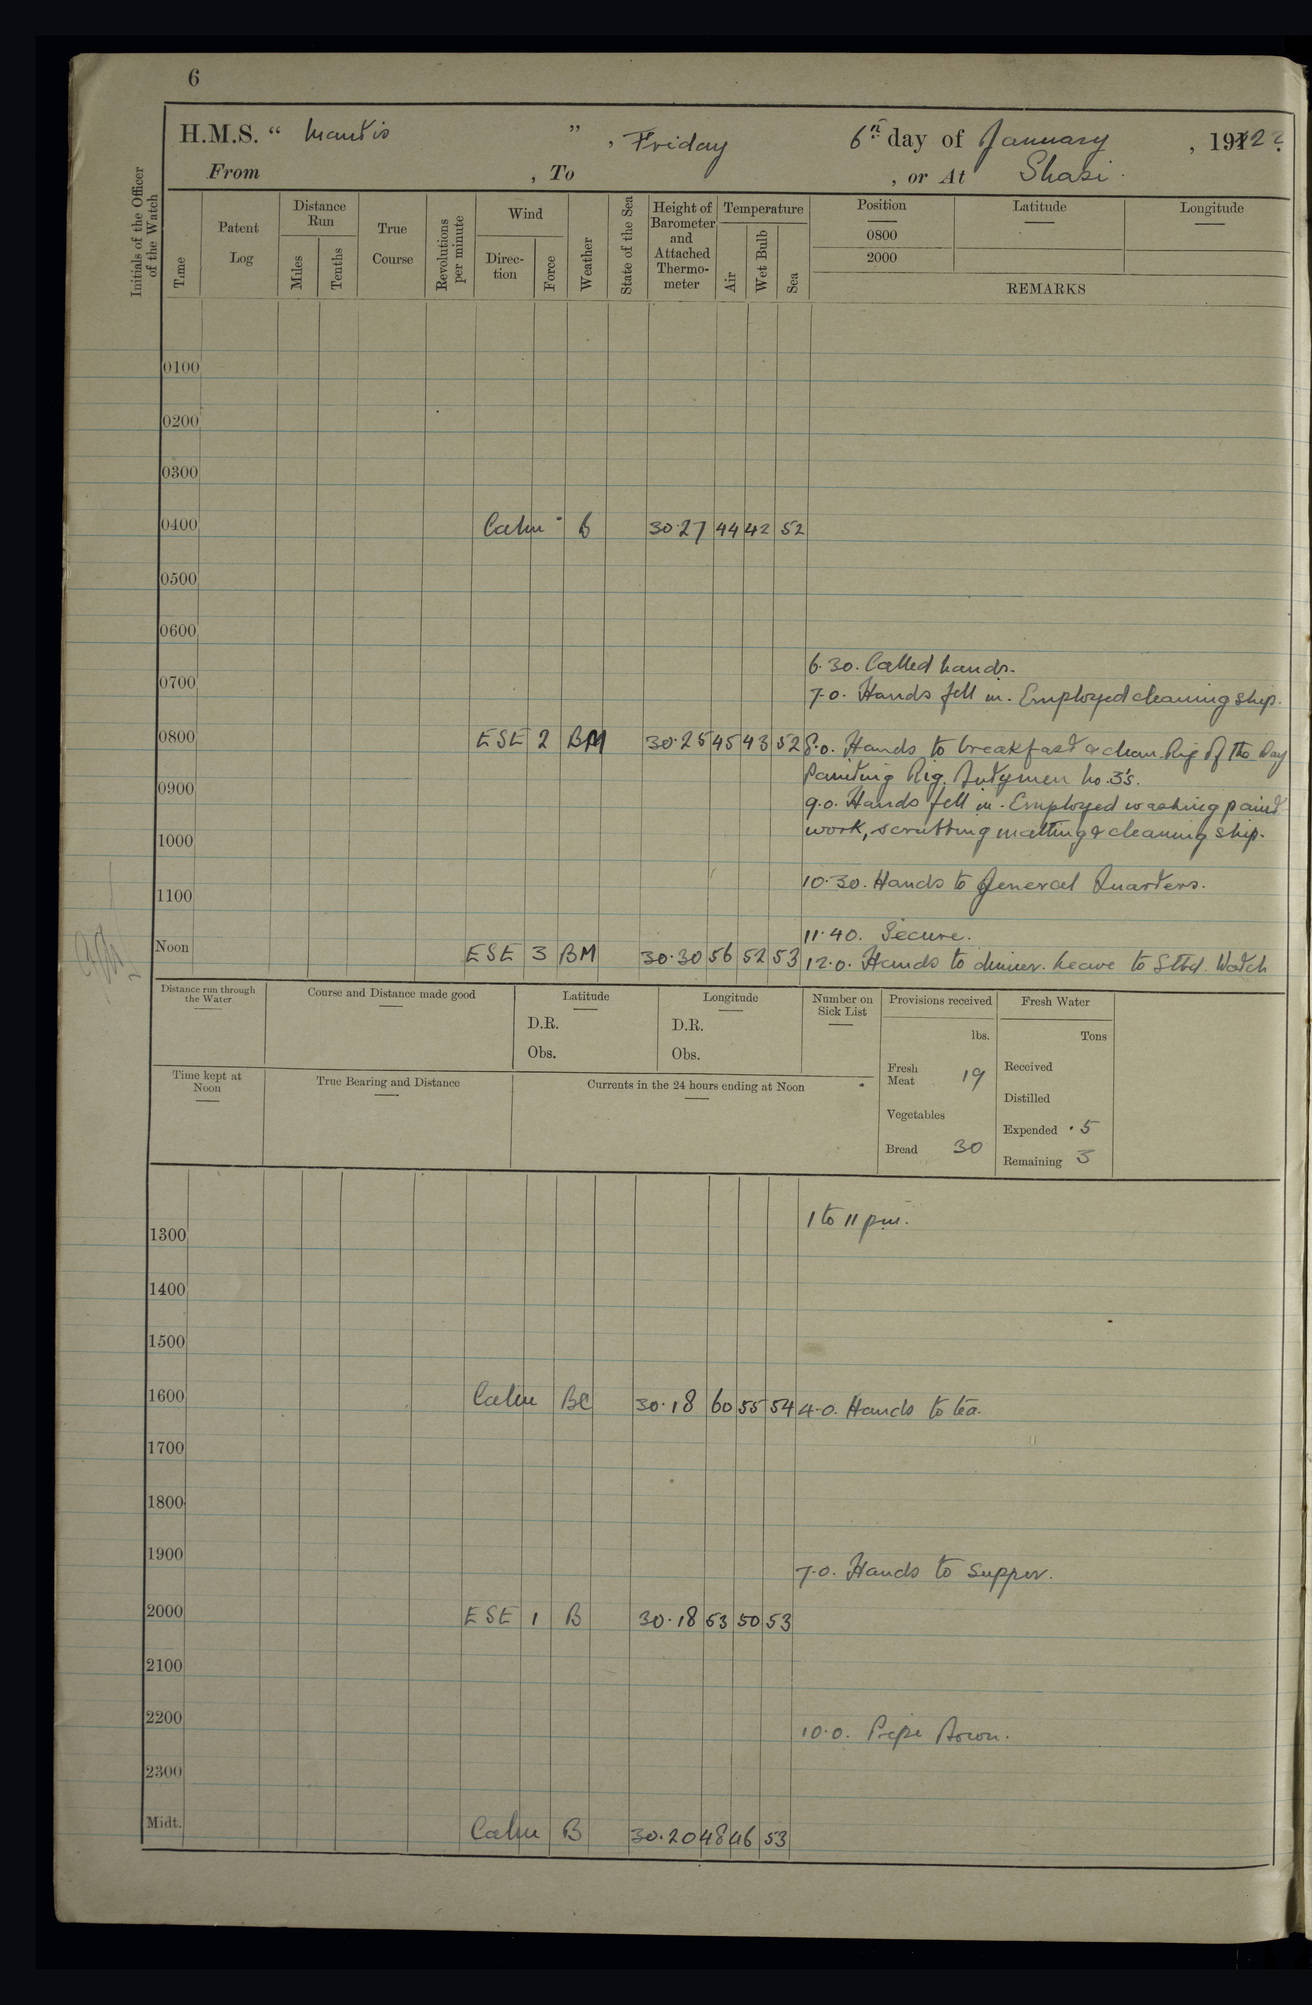 6
H.M.S. “ Mantis ” , Friday 6th day of January , 1922.
From , To , or At Shasi.
Initials of the Officer of the Watch
Time
Patent Log
Distance Run
Miles
Tenths
True Course
Revolutions per minute
Wind
Direction
Force
Weather
State of the Sea
Height of Barometer and Attached Thermometer
Temperature
Air
Wet Bulb
Sea
Position
0800
2000
Latitude
Longitude
REMARKS
0100
0200
0300
0400 Calm B 30.27 44 42 52
0500
0600
6.30. Called hands.
0700
7.0. Hands fell in. Employed cleaning ship.
0800 ESE 2 BM 30.25 45 43 52 8.0. Hands to breakfast & clean. Rig of the Day
Painting Rig. Dutymen No. 3's.
0900
9.0. Hands fell in. Employed washing paint
work, scrubbing matting & cleaning ship.
1000
10.30. Hands to General Quarters.
1100
11.40. Secure.
Noon ESE 3 BM 30.30 56 52 53 12.0. Hands to dinner. Leave to Stbd. Watch
Distance run through the Water
Course and Distance made good
Latitude
D.R.
Obs.
Longitude
D.R.
Obs.
Number on Sick List
Provisions received
lbs.
Fresh Meat 19
Vegetables
Bread 30
Fresh Water
Tons
Received
Distilled
Expended .5
Remaining 3
Time kept at Noon
True Bearing and Distance
Currents in the 24 hours ending at Noon
1 to 11 pm.
1300
1400
1500
1600 Calm BC 30.18 60 55 54 4.0. Hands to tea.
1700
1800
1900
7.0. Hands to supper.
2000 ESE 1 B 30.18 53 50 53
2100
2200
10.0. Pipe Down.
2300
Midt. Calm B 30.20 48 46 53